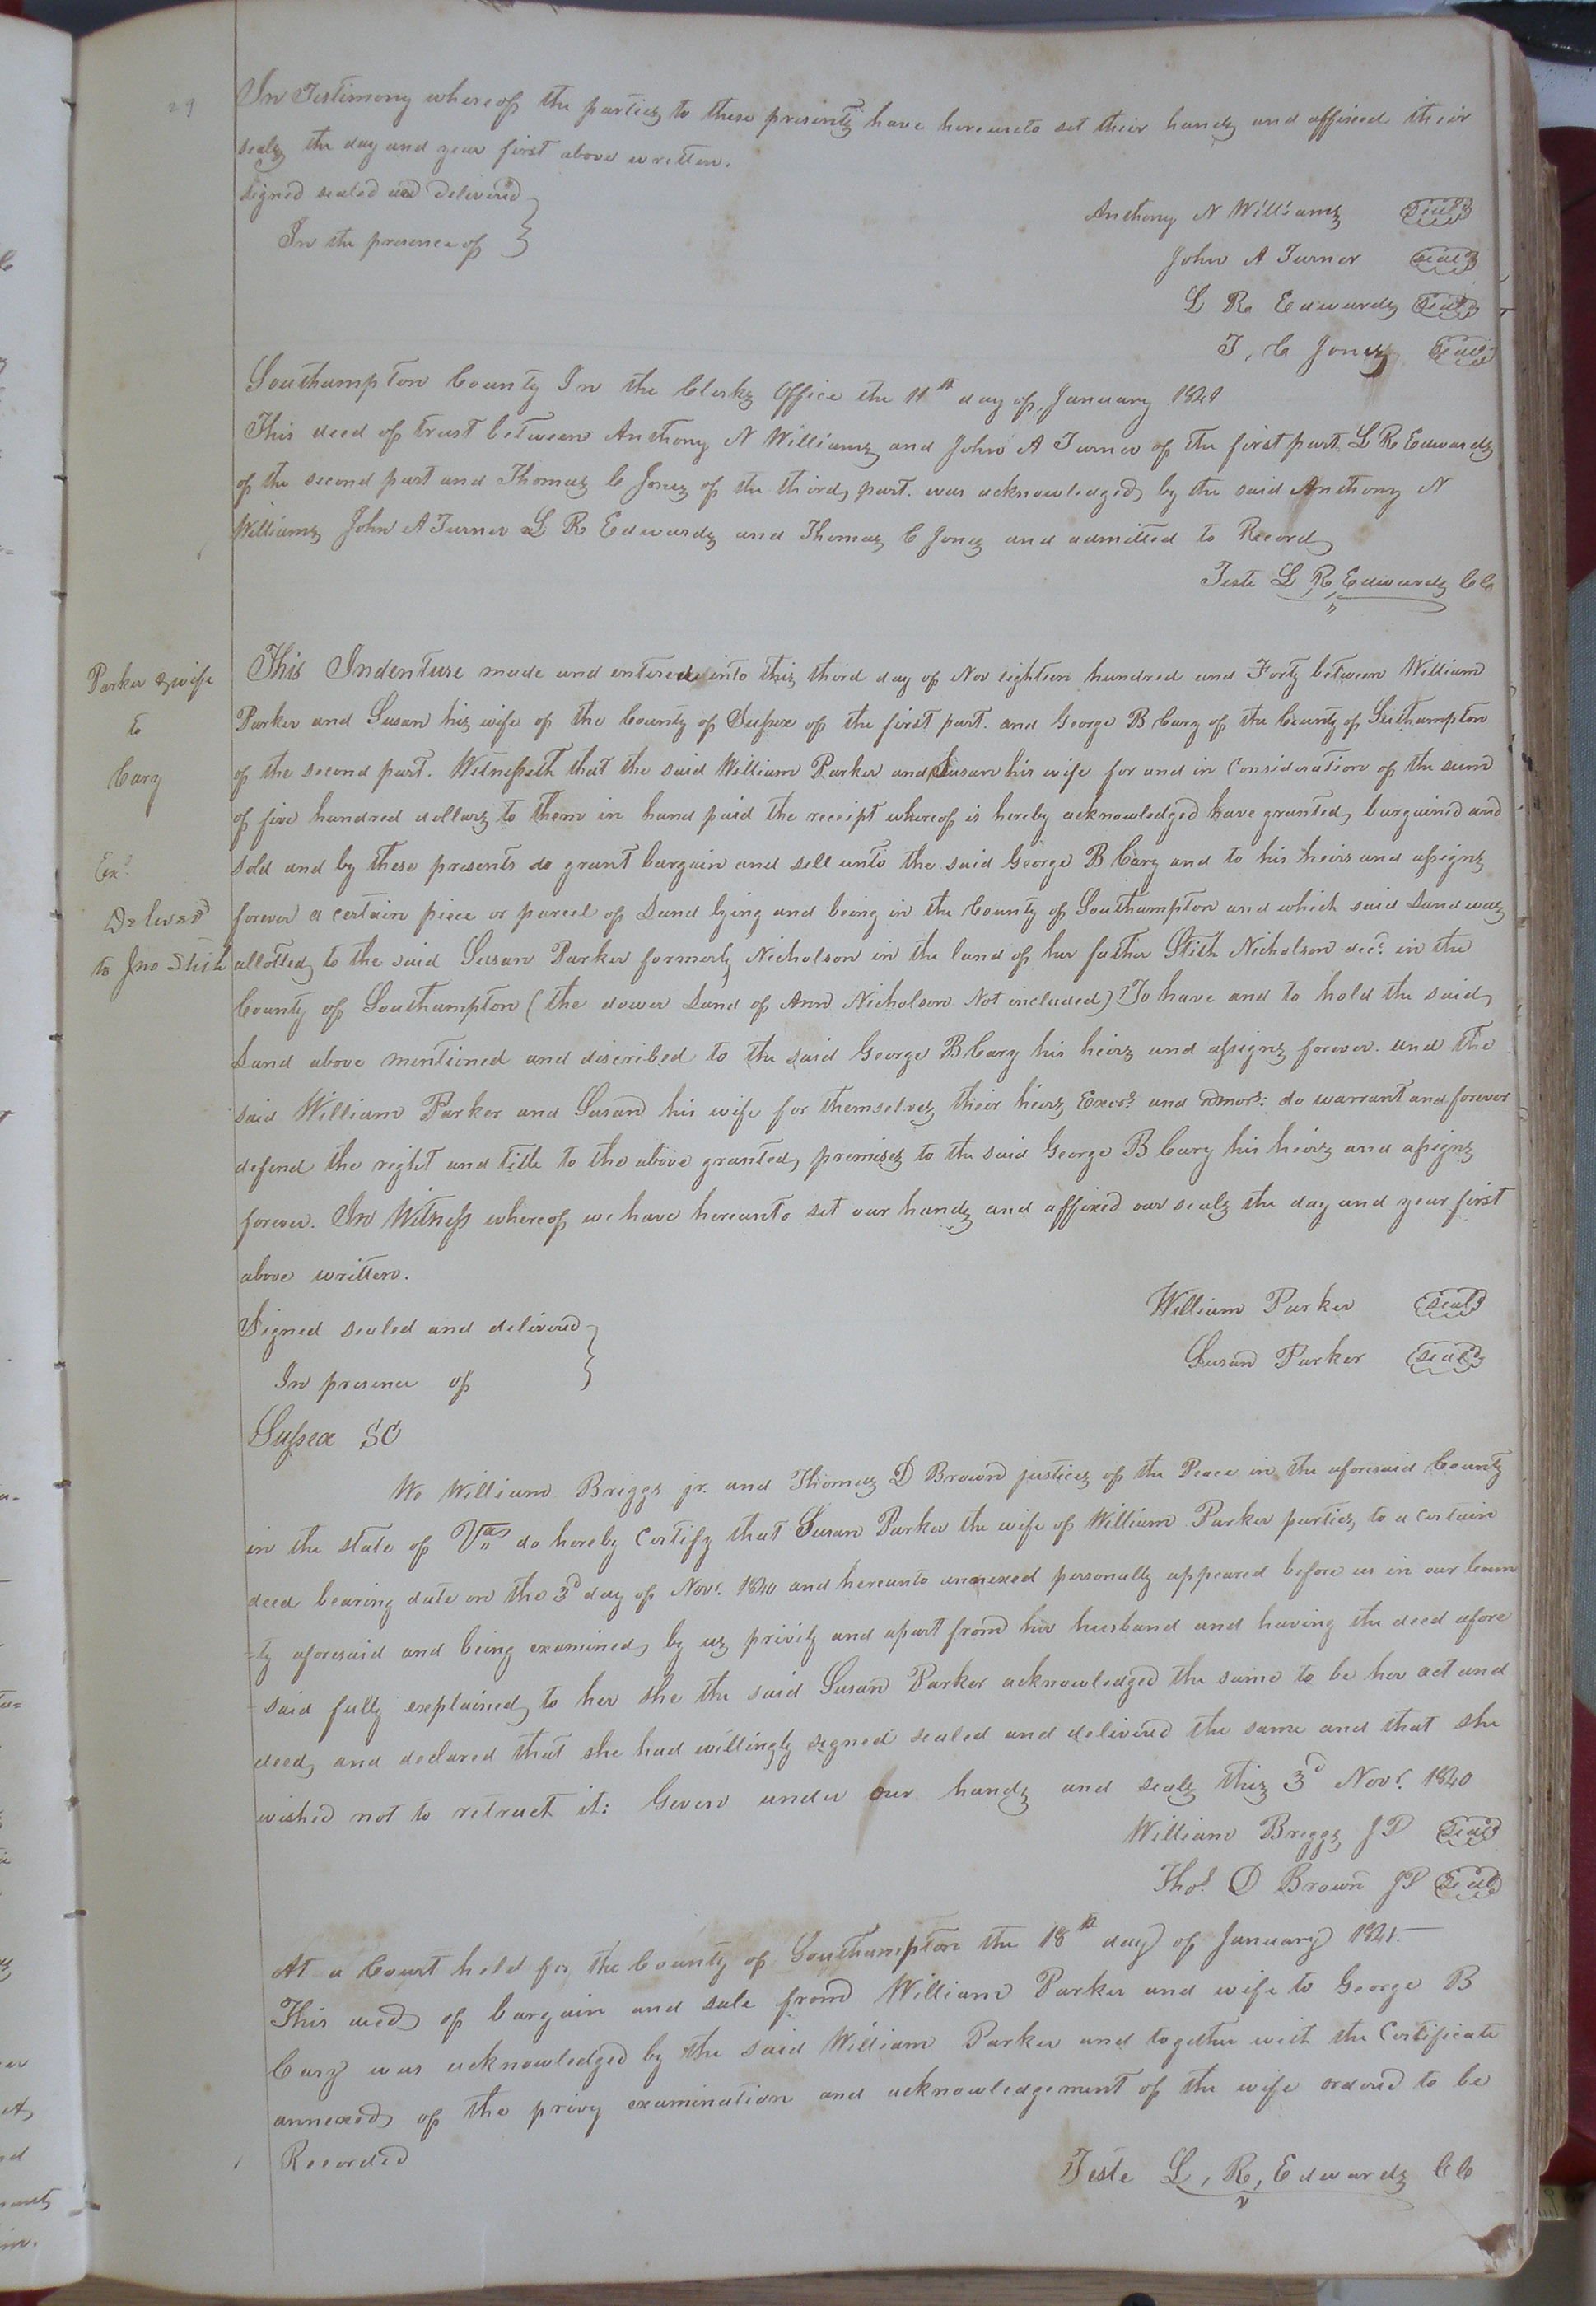 29
In Testimony whereof the parties to these presents have hereunto set their hands and affixed their
seals the day and year first above written.
Signed sealed and delivered
In the presence of
Anthony N Williams seal
John A Turner seal
L R Edwards seal
T, C Jones seal
Southampton County In the Clerks Office the 11th day of January 1841
This deed of trust between Anthony N Williams and John A Turner of the first part L R Edwards
of the second part and Thomas C Jones of the third part. was acknowledged by the said Anthony N
Williams John A Turner L R Edwards and Thomas C Jones and admitted to Record
Teste L, R, Edwards CC
Parker & wife
to
Cary
Exd
Delivered
to Jno Stith
This Indenture made and entered into this third day of Nov eighteen hundred and Forty between William
Parker and Susan his wife of the County of Sussex of the first part. and George B Cary of the County of Suthampton
of the second part. Witnesseth that the said William Parker and Susan his wife for and in consideration of the sum
of five hundred dollars to them in hand paid the receipt whereof is hereby acknowledged have granted, bargained and
sold and by these presents do grant bargain and sell unto the said George B Cary and to his heirs and assigns
forever a certain piece or parcel of Land lying and being in the County of Southampton and which said Land was
allotted to the said Susan Parker formerly Nicholson in the land of her father Stith Nicholson decd. in the
County of Southampton (the dower Land of Ann Nicholson Not included) To have and to hold the said
Land above mentioned and discribed to the said George B Cary his heirs and assigns forever. and the
said William Parker and Susan his wife for themselves their heirs Execrs. and Admors: do warrant and forever
defend the right and title to the above granted premises to the said George B Cary his heirs and assigns
forever. In Witness whereof we have hereunto set our hands and affixed our seals the day and year first
above written.
Signed sealed and delivered
In presence of
William Parker seal
Susan Parker seal
Sussex SC
We William Briggs jr. and Thomas D Brown justices of the Peace in the aforesaid County
in the state of Va do hereby Certify that Susan Parker the wife of William Parker parties, to a certain
deed bearing date on the 3d day of Novr. 1840 and hereunto annexed personally appeared before us in our Coun
=ty aforesaid and being examined by us privily and apart from her husband and having the deed afore
=said fully explained to her she the said Susan Parker acknowledged the same to be her act and
deed, and declared that she had willingly signed sealed and delivered the same and that she
wished not to retract it: Given under our hands and seals this 3d Novr. 1840
William Briggs JP seal
Thos. D Brown JP seal
At a Court held for the County of Southampton the 18th day of January 1841.
This deed of bargain and sale from William Parker and wife to George B
Cary was acknowledged by the said William Parker and together with the Certificate
annexed of the privy examination and acknowledgement of the wife ordered to be
Recorded
Teste L, R, Edwards CC